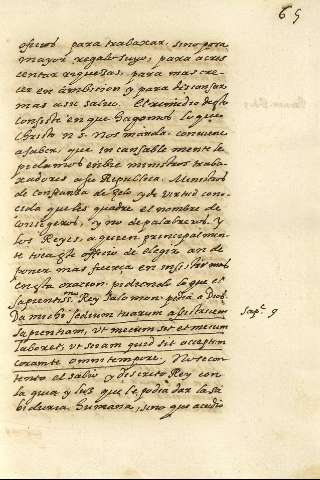 65
oficios para trabaxar, sino para
mayor regalo suyo, para acres
centar riquezas, para mas cre
cer en ambicion y para descansar
mas a su salvo. El remedio desto
consiste en que hagamos lo que
Christo n. s. nos manda, conviene
a saber, que incansablemente le
pidamos enbie ministros traba
xadores a su Republica. Ministros
de constanzia de zelo, y de virtud cono
cida que les quadre el nombre de
consegeros, y no de palabreros. y
los Reyes, a quien principalmen
te toca este officio de elegir an de
poner mas fuerça en
en esta oracion pidiendo lo que el
sapientissmo Rey Salomon pedia a Dios.
Da michi sedium tuarum assistricem
sapientiam, vt mecum sit et mecum
laboret, vt sciam quid sit acceptum
coram te omni tempore. No se con
tento el sabio y discreto Rey con
la guia y luz que le podia dar la sa
biduria humana, sino que acudio
Sap. 9